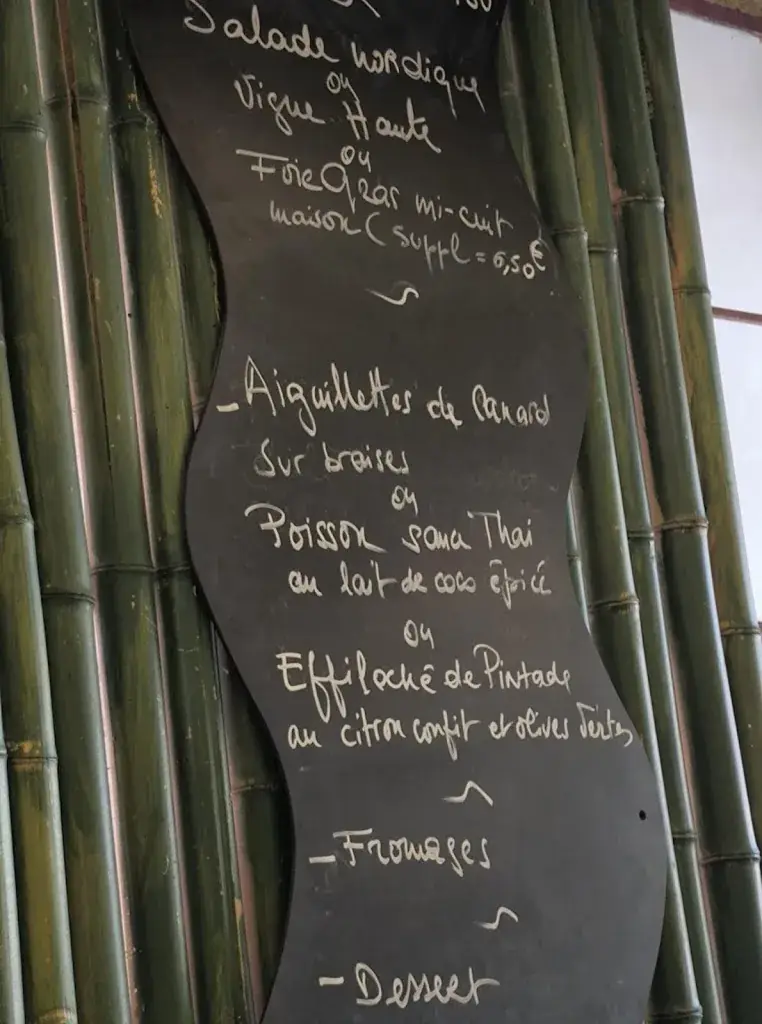 Salade nordique
ou
Vigne Haute
ou
Foie Gras mi-cuit
maison (suppl = 6,50€
- Aiguillettes de Canard
sur braises
ou
Poisson sauce Thai
au lait de coco épicé
ou
Effiloché de Pintade
au citron confit et olives Vertes
- Fromages
- Dessert